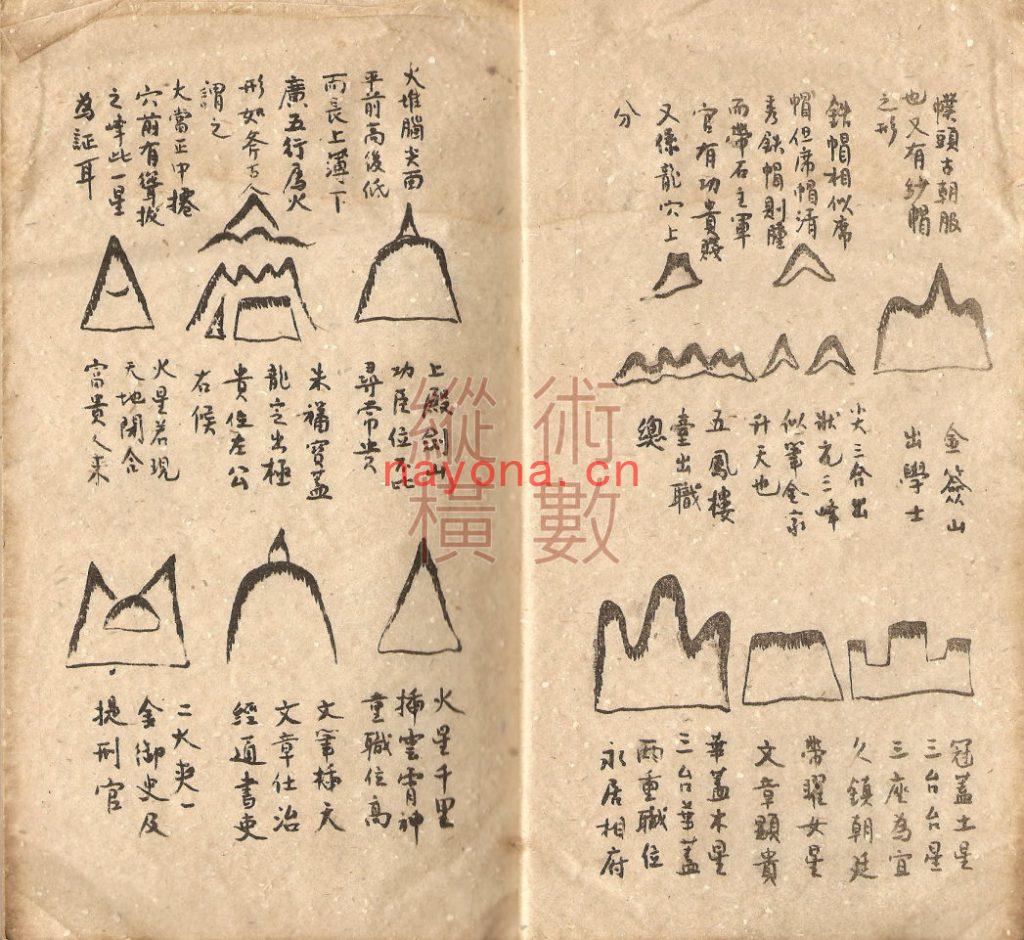 幞頭古朝服
也又有紗帽
之形
鉄帽相似席
帽但席帽清
秀鉄帽則腫
而帶石主軍
官有功貴賤
又像龍穴上
分
金簽山
出學士
火三台出
狀元三峰
似筆金家
升天也
五鳳樓
臺出職
總
冠蓋土星
三台台星
三座為宜
久鎮朝廷
帶曜女星
文章顯貴
華蓋木星
三台華蓋
兩重職位
永居相府
火堆腦尖面
平前高後低
而長上薄下
廣五行屬火
形如斧古人
謂之
大當正中捲
穴前有聳拔
之峰此一星
為証耳
上殿劍山
功臣位不比
尋常貴
朱福寶蓋
龍定出極
貴位左公
右候
火星若現
天地開合
富貴人来
火星千里
插雲霄神
童職位高
文筆插天
文章仕治
經道書吏
二火夾一
金御史及
提刑官
縱橫術數
nayona.cn